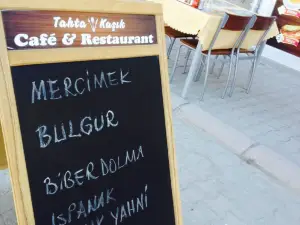 Tahta Kaşık
Café & Restaurant
MERCİMEK
BULGUR
BİBER DOLMA
ISPANAK
YAHNİ